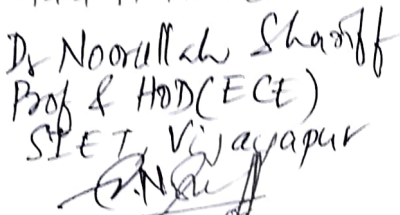 Dr Noorullah Shariff
Prof & HOD (ECE)
SIET, Vijayapur